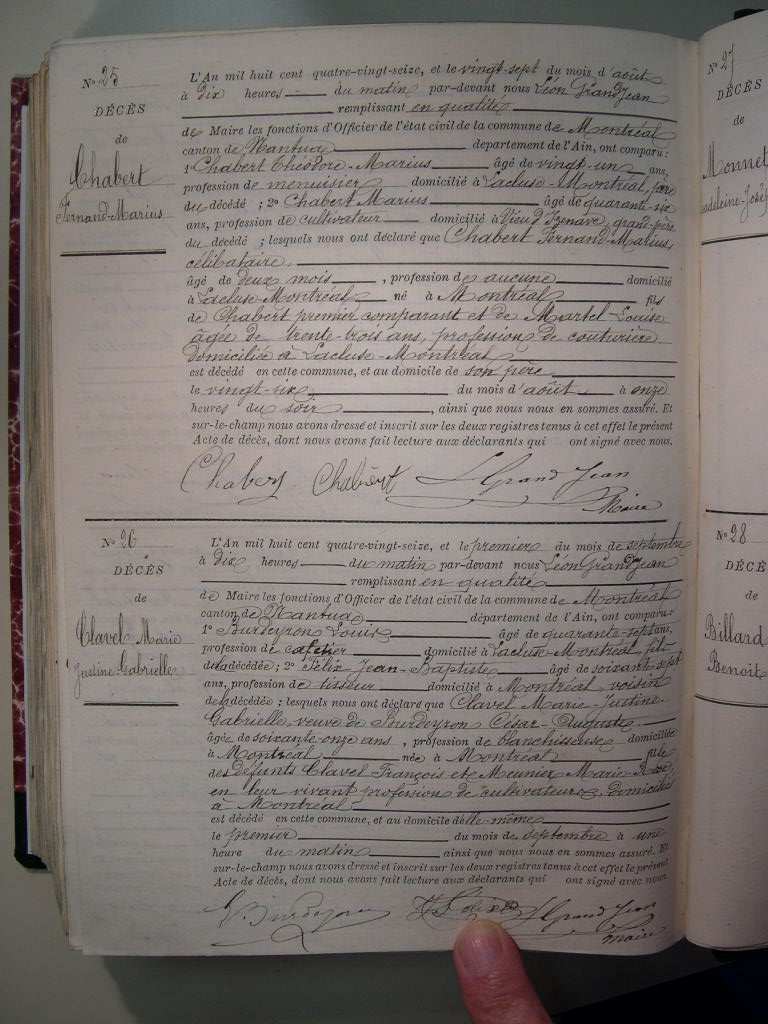 No 25
DÉCÈS
de
Chabert
Fernand-Marius
L'An mil huit cent quatre-vingt-seize, et le vingt-sept du mois d'août
à dix heures du matin par-devant nous Léon Grandjean
remplissant en qualité
de Maire les fonctions d'Officier de l'état civil de la commune de Montréal
canton de Nantua département de l'Ain, ont comparu :
1º Chabert Théodore-Marius âgé de vingt-un ans,
profession de menuisier domicilié à Lacluse-Montréal, père
du décédé ; 2º Chabert Marius âgé de quarante-six
ans, profession de cultivateur domicilié à Vieu d'Izenave, grand-père
du décédé ; lesquels nous ont déclaré que Chabert Fernand-Marius
célibataire
âgé de deux mois, profession de aucune domicilié
à Lacluse-Montréal né à Montréal fils
de Chabert premier comparant et de Martel Louise
âgée de trente-trois ans, profession de couturière
domiciliée à Lacluse-Montréal
est décédé en cette commune, et au domicile de son père
le vingt-six du mois d'août à onze
heures du soir, ainsi que nous nous en sommes assuré. Et
sur-le-champ nous avons dressé et inscrit sur les deux registres tenus à cet effet le présent
Acte de décès, dont nous avons fait lecture aux déclarants qui ont signé avec nous.
Chabert Chabert L Grand Jean
Maire
No 26
DÉCÈS
de
Clavel Marie
Justine-Gabrielle
L'An mil huit cent quatre-vingt-seize, et le premier du mois de septembre
à dix heures du matin par-devant nous Léon Grandjean
remplissant en qualité
de Maire les fonctions d'Officier de l'état civil de la commune de Montréal
canton de Nantua département de l'Ain, ont comparu :
1º Burdeyron Louis âgé de quarante-sept ans,
profession de cafetier domicilié à Lacluse-Montréal, fils
de la décédée ; 2º Félix Jean-Baptiste âgé de soixante-sept
ans, profession de tisseur domicilié à Montréal, voisin
de la décédée ; lesquels nous ont déclaré que Clavel Marie-Justine-
Gabrielle, veuve de Bourdeyron César-Auguste
âgée de soixante-onze ans, profession de blanchisseuse domiciliée
à Montréal née à Montréal fille
des défunts Clavel François et Meunier Marie
en leur vivant profession de cultivateurs, domiciliés
à Montréal
est décédé en cette commune, et au domicile d'elle-même
le premier du mois de septembre à une
heure du matin ainsi que nous nous en sommes assuré. Et
sur-le-champ nous avons dressé et inscrit sur les deux registres tenus à cet effet le présent
Acte de décès, dont nous avons fait lecture aux déclarants qui ont signé avec nous.
L Grand Jean
maire
No 27
DÉCÈS
de
Monnet
No 28
DÉCÈS
de
Billard
Benoit